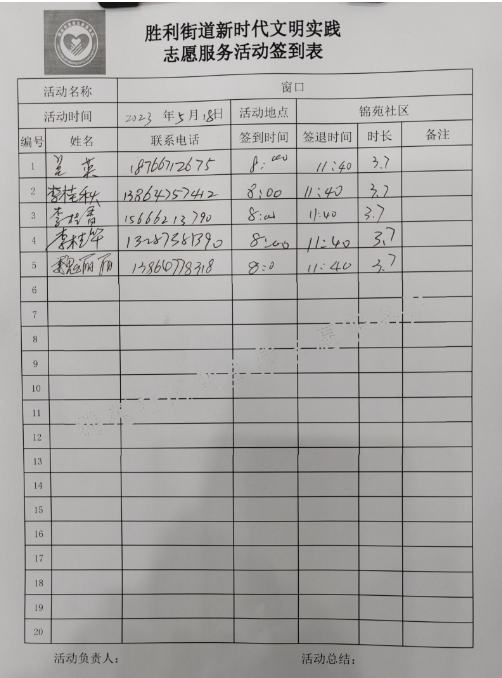 胜利街道新时代文明实践
志愿服务活动签到表
活动名称 窗口
活动时间 2023 年 5 月 18 日 活动地点 锦苑社区
编号 姓名 联系电话 签到时间 签退时间 时长 备注
1 英 18766712675 8:00 11:40 3.7
2 李桂秋 13864257412 8:00 11:40 3.7
3 李桂香 15666213790 8:00 11:40 3.7
4 李桂华 13287381390 8:00 11:40 3.7
5 魏丽丽 13864778318 8:0 11:40 3.7
6
7
8
9
10
11
12
13
14
15
16
17
18
19
20
活动负责人： 活动总结：